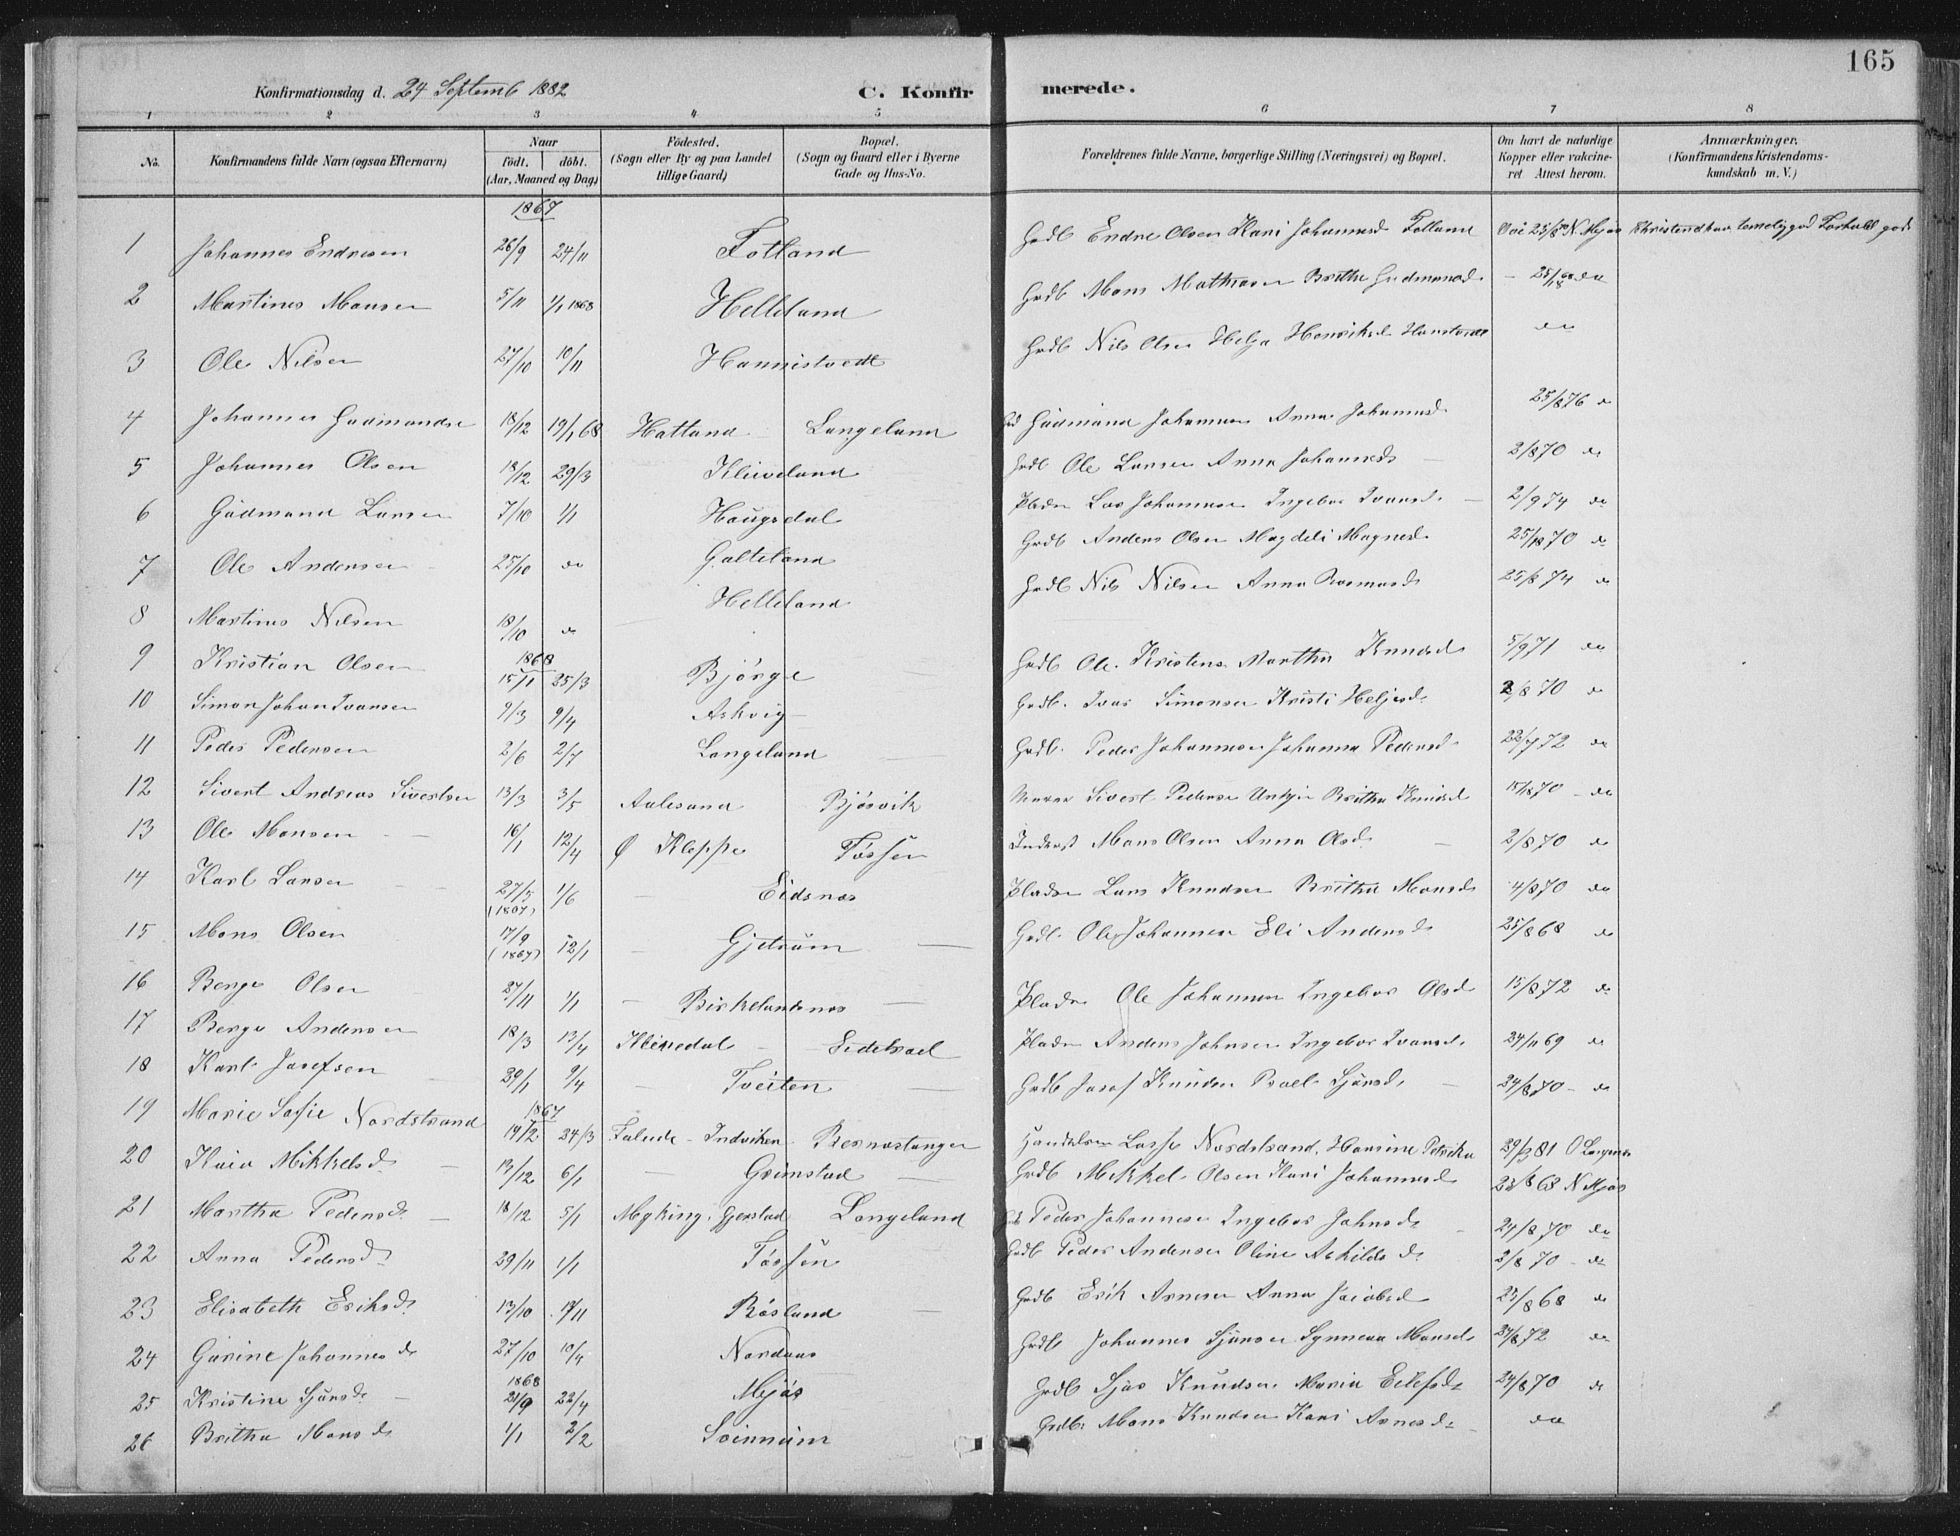 165
Konfirmationsdag d. 24 Septemb 1882 C. Konfir merede.
1 2 3 4 5 6 7 8
No. Konfirmandens fulde Navn (ogsaa Efternavn) Naar födt. döbt. (Aar, Maaned og Dag) Födested. (Sogn eller By og paa Landet tillige Gaard) Bopæl. (Sogn og Gaard eller i Byerne Gade og Hus-No. Forældrenes fulde Navne, borgerlige Stilling (Næringsvei) og Bopæl. Om havt de naturlige Kopper eller vakcineret. Attest herom. Anmærkninger. (Konfirmandens Kristendomskundskab m. V.)
1867
1 Johannes Endresen 26/9 24/11 Fotland Grdb Endre Olsen Kari Johannesd Fotland 25/8 N. Mjøs temelig god Forhold godt
2 Martines Monsen 5/11 1/1 1868 Helleland Grdb Mons Mathiasen Britha Gudmundsd 25/8 68 do
3 Ole Nilsen 27/10 10/11 Hannistvedt Grdb Nils Olsen Helga Henriksd Hanstvedt do
4 Johannes Gudmundsen 18/12 19/1 68 Hatland Langeland Gudmund Johannesen Anna Johannesd 25/8 76 do
5 Johannes Olsen 18/12 29/3 Kleiveland Grdb Ole Larsen Anna Johannesd 2/8 70 do
6 Gudmund Larsen 7/10 1/1 Hougsdal Pladsm Lars Johannesen Ingebor Ivarsd 2/9 74 do
7 Ole Andersen 25/10 do Galteland Grdb Anders Olsen Magdeli Magnesd 25/8 70 do
8 Martines Nilsen 18/10 do Helleland Grdb Nils Nilsen Anna Rasmusd 25/8 74 do
1868
9 Kristian Olsen 15/1 25/3 Bjørge Grdb Ole Kristens Martha Knudsd 5/9 71 do
10 Simon Johan Ivarsen 9/3 9/4 Askvig Grdb. Ivar Simonsen Kristi Heljesd 2/8 70 do
11 Peder Pedersen 2/6 2/7 Langeland Grdb. Peder Johannesen Johanna Pedersd 22/7 72 do
12 Sivert Andreas Sivertsen 13/3 3/5 Aalesund Bjørsvik Sivert Pedersen Britha Knudsd 15/8 70 do
13 Ole Monsen 16/1 12/4 Ø Kleppe Fosse Inderst Mons Olsen Anna Olsd 2/8 70 do
14 Karl Larsen 27/5 1/6 Eidsnes Pladsm Lars Knudsen Britha Monsd 4/8 70 do
(1867)
15 Mons Olsen 17/9 12/1 Gjetrum Grdb. Ole Johannesen Eli Andersd 25/8 68 do
(1867)
16 Berge Olsen 27/11 1/1 Birkelandsnes Pladsm Ole Johannesen Ingebor Olsd 15/8 72 do
17 Berge Andersen 18/3 13/4 Kleivedal Sidetræt Pladsm Anders Johnsen Ingebor Ivarsd 24/11 69 do
18 Karl Josefsen 29/1 9/4 Tveiten Grdb Josef Knudsen Sjursd 24/8 70 do
1867
19 Marie Sofie Nordstrand 19/2 24/3 Faleide Indviken Bernestangen Handelsm Lasse Nordstrand, Hansine Petrika 29/3 81
20 Kaia Mikkelsd 13/12 6/1 Grimstad Grdb Mikkel Olsen Kari Johannesd 25/8 68 N Mjøs
21 Martha Pedersd 18/12 5/1 Myking, Gjerstad Langeland Peder Johannesen Ingebor Johnsd 24/8 70 do
22 Anna Pedersd 29/11 1/1 Fosse Grdb Peder Andersen Oline Askildsd 2/8 70 do
23 Elisabeth Eriksd 13/10 17/11 Røsland Grdb Erik Arnesen Anna Jacobsd 23/8 68 do
24 Gurine Johannesd 27/10 10/4 Nordaas Grdb Johannes Sjursen Synneva Monsd 24/8 72 do
1868
25 Kristine Sjursd 21/9 22/4 Mjøs Grdb Sjur Knudsen Maria Eilefsd 24/8 70 do
26 Britha Monsd 1/1 2/2 Soinnum Grdb. Mons Knudsen Kari Arnesd do